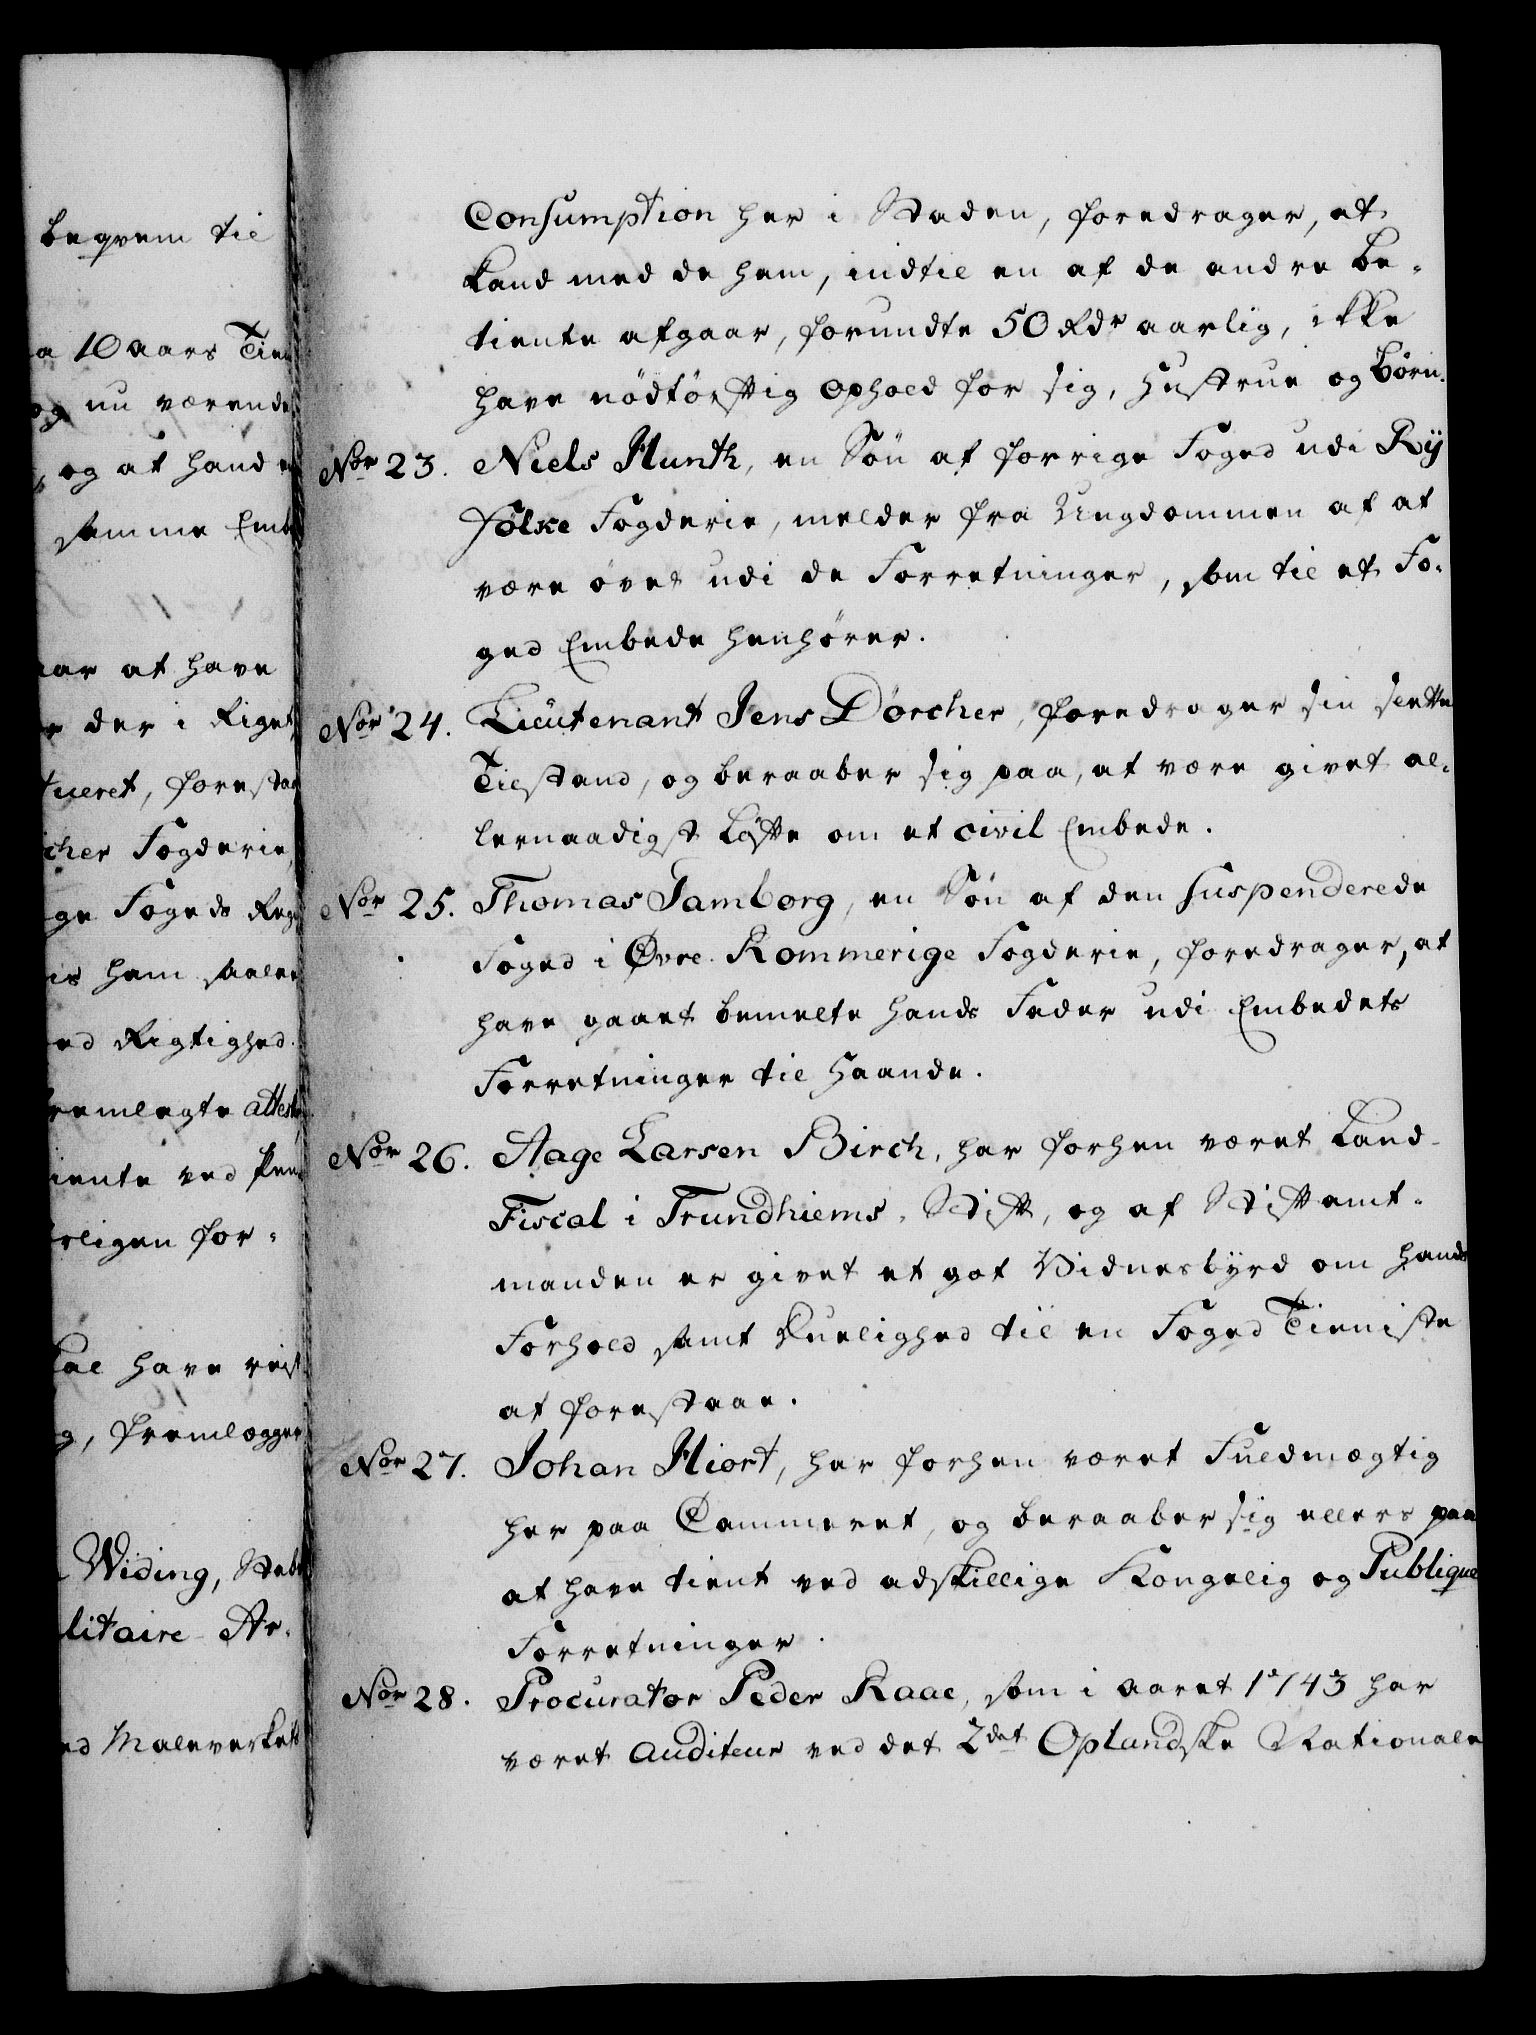 beqvem til
a 10 aars Tien
og nu værende
og at hand
samme Emb
aar at have
der i Riget
tueret, forestaa
cher Fogderie,
ge Fogeds Reg
is ham saalen
ed Rigtighed.
remlagte attest
iente ved
rligen for-
have reist
g, fremlægger
Widing, Stabs
litaire Ar-
ed Maleverkets
Consumption her i Staden, foredrager, at
kand med de ham, indtil en af de andre be-
tiente afgaar, forundte 50 Rdr aarlig, ikke
have nödtörftig ophold for sig, Hustrue og Börn.
Nor 23. Niels Munth, en Sön af forrige Foged udi Rÿ
Fölke Fogderie, melder fra Ungdommen af at
være övet udi de Forretninger, som til et Fo-
ged Embede henhörer.
Nor 24. Lieutenant Jens Dörcher, foredrager sin slette
Tilstand, og beraaber sig paa, at være givet al-
lernaadigst Löfte om et civil Embede.
Nor 25. Thomas Tamborg, en Sön af den suspenderede
Foged i Øvre Rommerige Fogderie, foredrager, at
have gaaet bemelte hands Fader udi Embedets
Forretninger til Haande.
Nor 26. Aage Larsen Birch, har forhen været Land-
Fiscal i Trundhiems Stift, og af Stiftamt-
manden er givet et got Vidnesbÿrd om hands
Forhold samt Duelighed til en Foged Tieniste
at forestaae.
Nor 27. Johan Hiort, har forhen været Fuldmægtig
her paa Cammeret, og beraaber sig ellers paa
at have tient ved adskillige Kongelig og Publique
Forretninger.
Nor 28. Procurator Peder Raae, som i aaret 1743 har
været Auditeur ved det 2det Oplandske Nationale